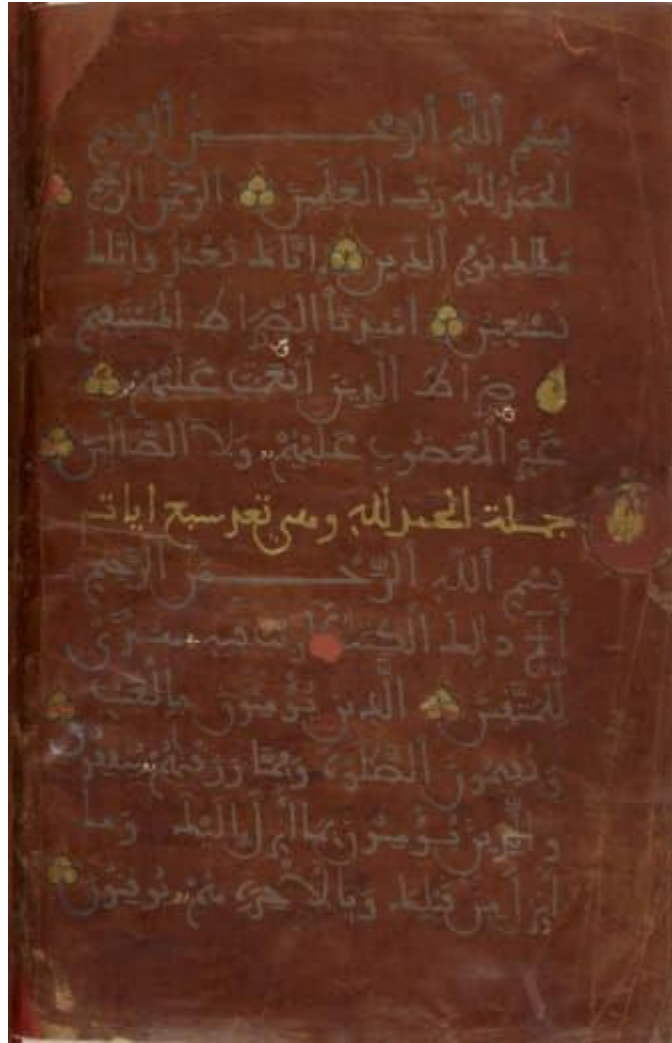 بسم الله الرحمن الرحيم
الحمد لله رب العلمين الرحمن الرحيم
ملك يوم الدين اياك نعبد واياك
نستعين اهدنا الصراط المستقيم
صراط الذين أنعمت عليهم
غير المغضوب عليهم ولا الضالين
جملة الحمد لله وهي تعد سبع ايات
بسم الله الرحمن الرحيم
الم ذلك الكتب لا ريب فيه هدى
للمتقين الذين يؤمنون بالغيب
ويقيمون الصلوة ومما رزقنهم ينفقون
والذين يؤمنون بما أنزل إليك وما
أنزل من قبلك وبالأخرة هم يوقنون